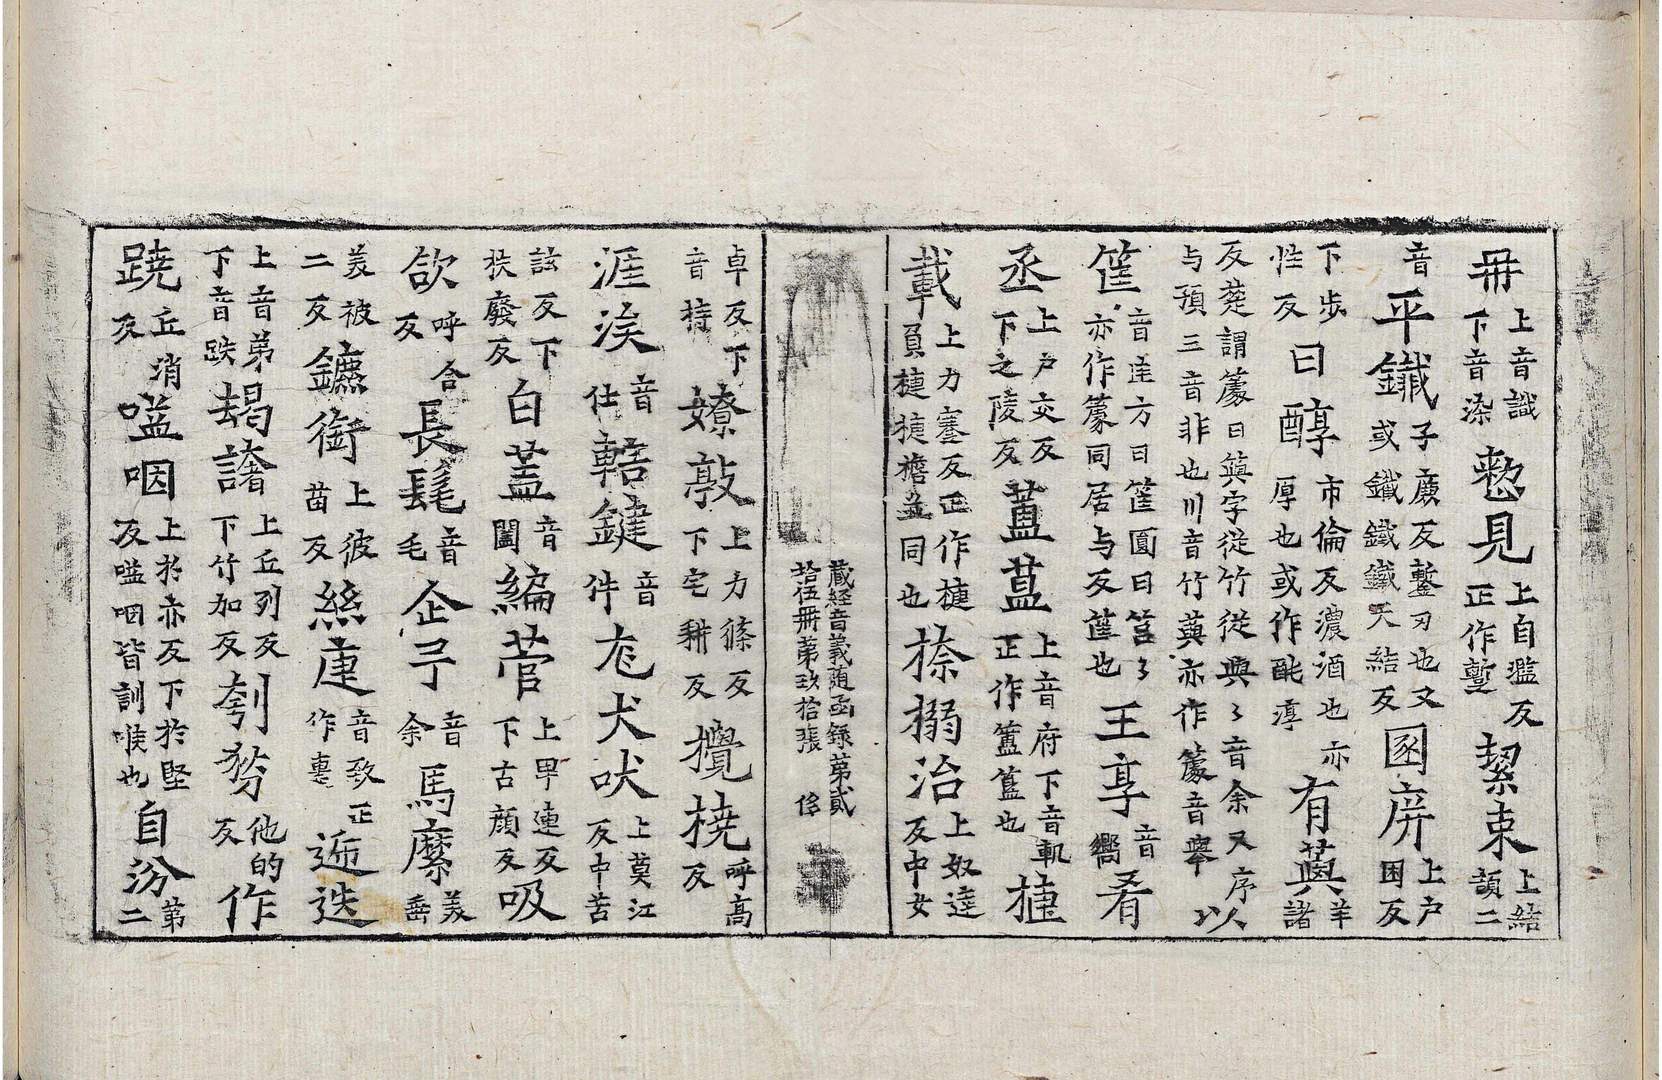 冊上音識下音染慙見上自濫反正作蹔絜束上結反下韻二
音平鑯子廉反鏨刃也又或鐵鐵鐵天結反圂庰上戶困反
下步性反曰醇市倫反濃酒也亦厚也或作酏淳有藇羊諸
反楚謂籑曰籅字從竹從與〻音余又序与預三音非也川音竹藇亦作籑音舉以
筐音匡方曰筐圎曰筥〻亦作篆同居与反筐也王享音嚮肴
丞上戶交反下之陵反蓋蒀上音府下音軌正作簠簋也揵
載上力蹇反正作槤負槤㨷檐並同也捺搦治上奴達反中女
藏經音義随函録第貳拾伍冊第玖拾張 侈
卓反下音持嫽敲上力條反下宅耕反攪撓呼高反
涯涘音仕轄鍵音件尨犬吠上莫江反中苦
該反下扶廢反白蓋音闔編菅上卑連反下古顔反吸
欲呼合反長髦音毛企予音余馬縻美垂
美被二反鑣銜上彼苗反絲疌音致正作疐近迭
上音弟下音跌朅譇上丘列反下竹加反刳剺他的反作
蹺丘消反嗌咽上於亦反下於堅反嗌咽皆訓喉也自汾第二